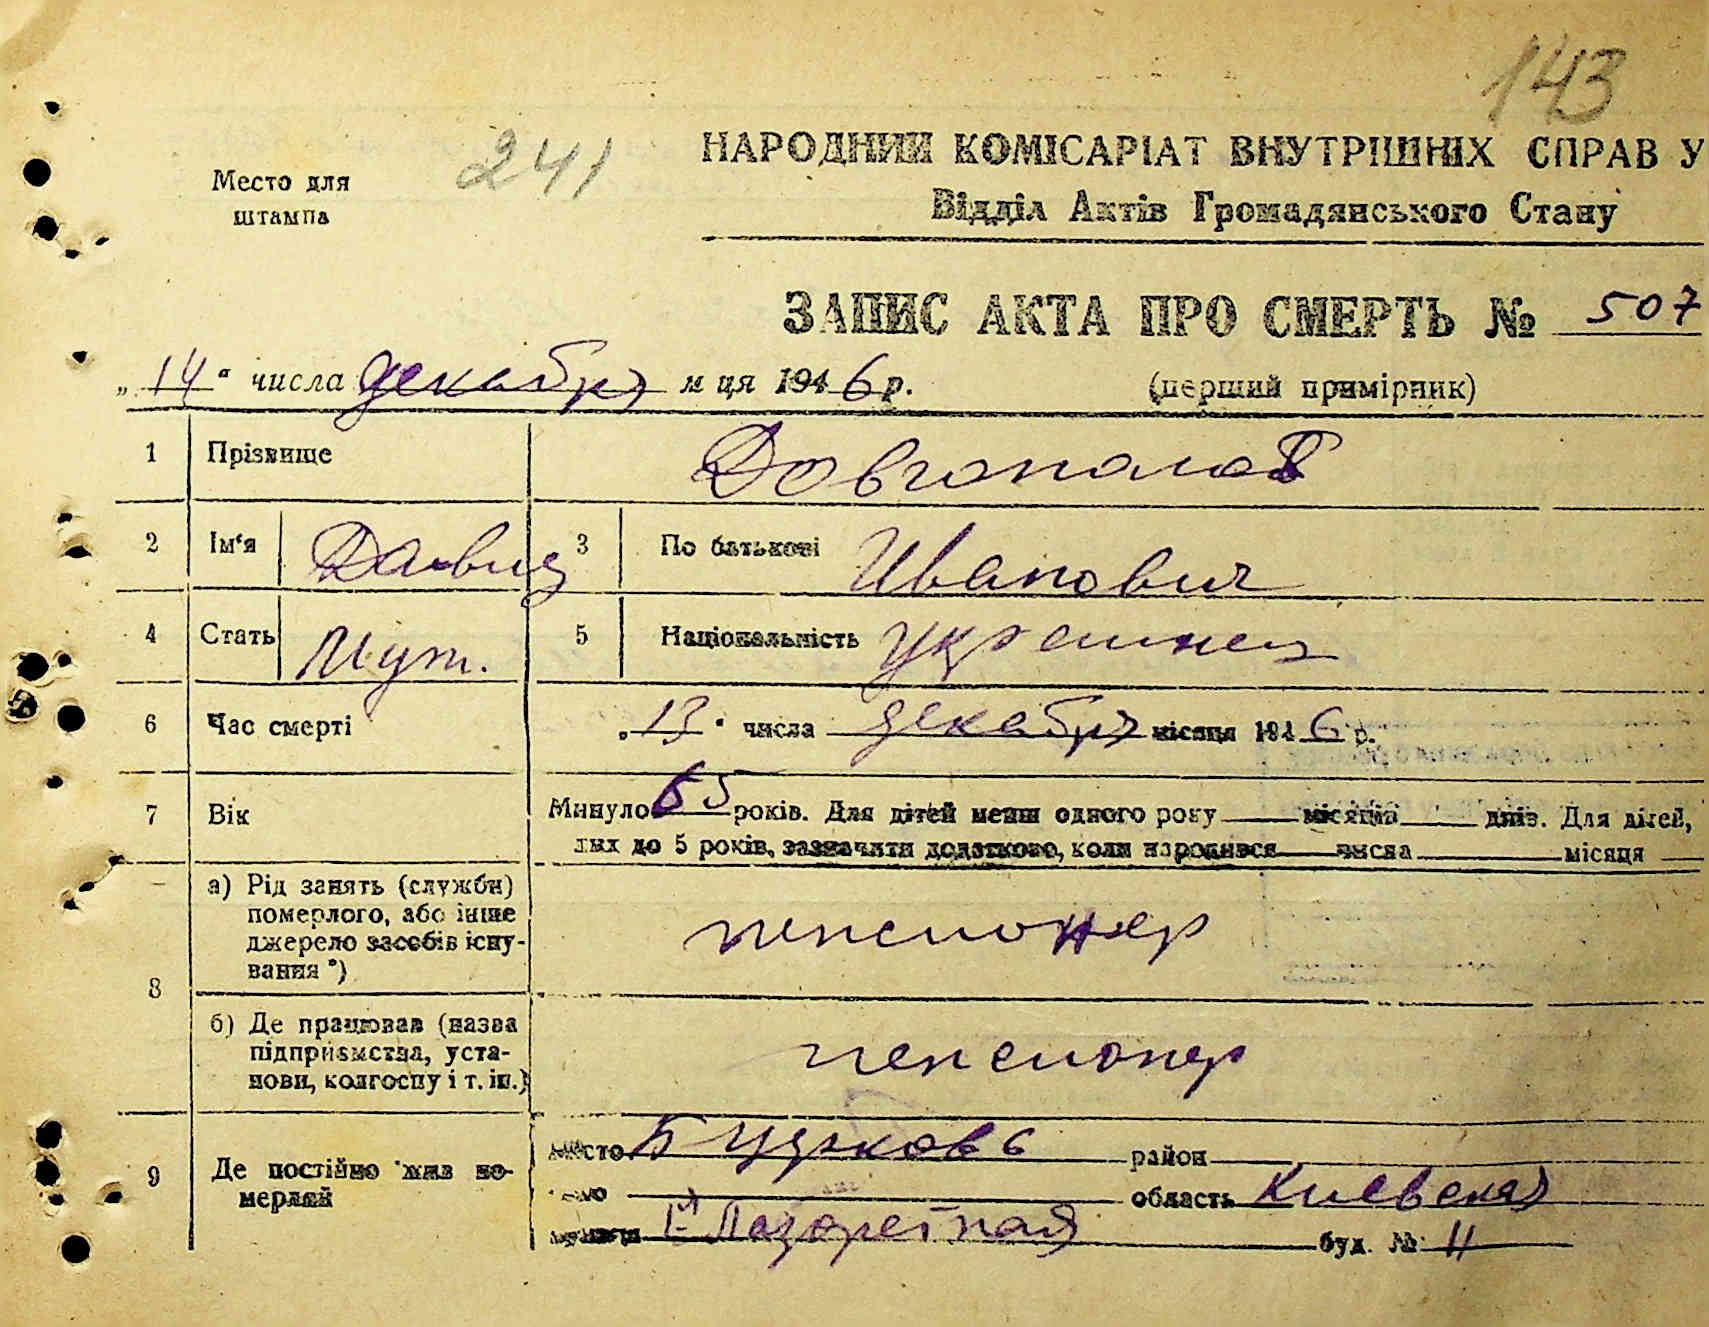 143
241
Место для
штампа
НАРОДНИЙ КОМІСАРІАТ ВНУТРІШНІХ СПРАВ У
Відділ Актів Громадянського Стану
ЗАПИС АКТА ПРО СМЕРТЬ № 507
„14" числа декабря м ця 1946 р. (перший примірник)
1 Прізвище Довгополов
2 Ім'я Давид 3 По батькові Иванович
4 Стать Муж. 5 Національність украинец
6 Час смерті „13" числа декабря місяця 1946 р.
7 Вік Минуло 65 років. Для дітей менш одного року місяців днів. Для дітей,
лих до 5 років, зазначити додатково, коли народився числа місяця
8 а) Рід занять (служби)
померлого, або інше
джерело засобів існу-
вання *)
пенсионер
б) Де працював (назва
підприємства, уста-
нови, колгоспу і т. ін.)
пенсионер
9 Де постійно жив по-
мерлий
место район
область Киевская
1я Лазаретная буд. № 11